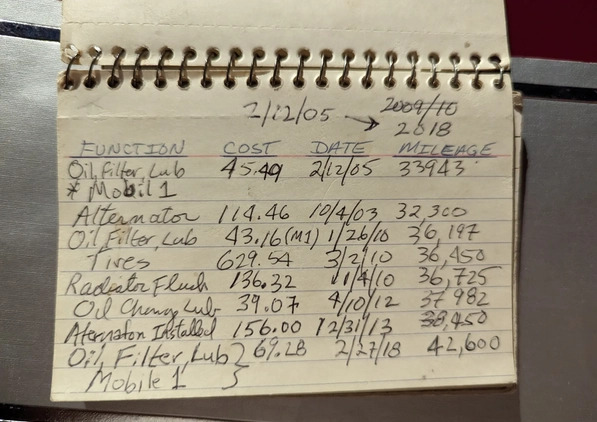 2/12/05 → 2009/10
2018
FUNCTION COST DATE MILEAGE
Oil, Filter, Lub 45.49 2/12/05 33943
* Mobil 1
Alternator 114.46 10/4/03 32,300
Oil, Filter, Lub 43.16 (M1) 1/26/10 36,197
Tires 629.54 3/2/10 36,450
Radiator Flush 136.32 11/4/10 36,725
Oil Change Lub 39.07 4/10/12 37982
Aternator Installed 156.00 12/31/13 38,450
Oil, Filter, Lub } 69.28 2/27/18 42,600
Mobile 1